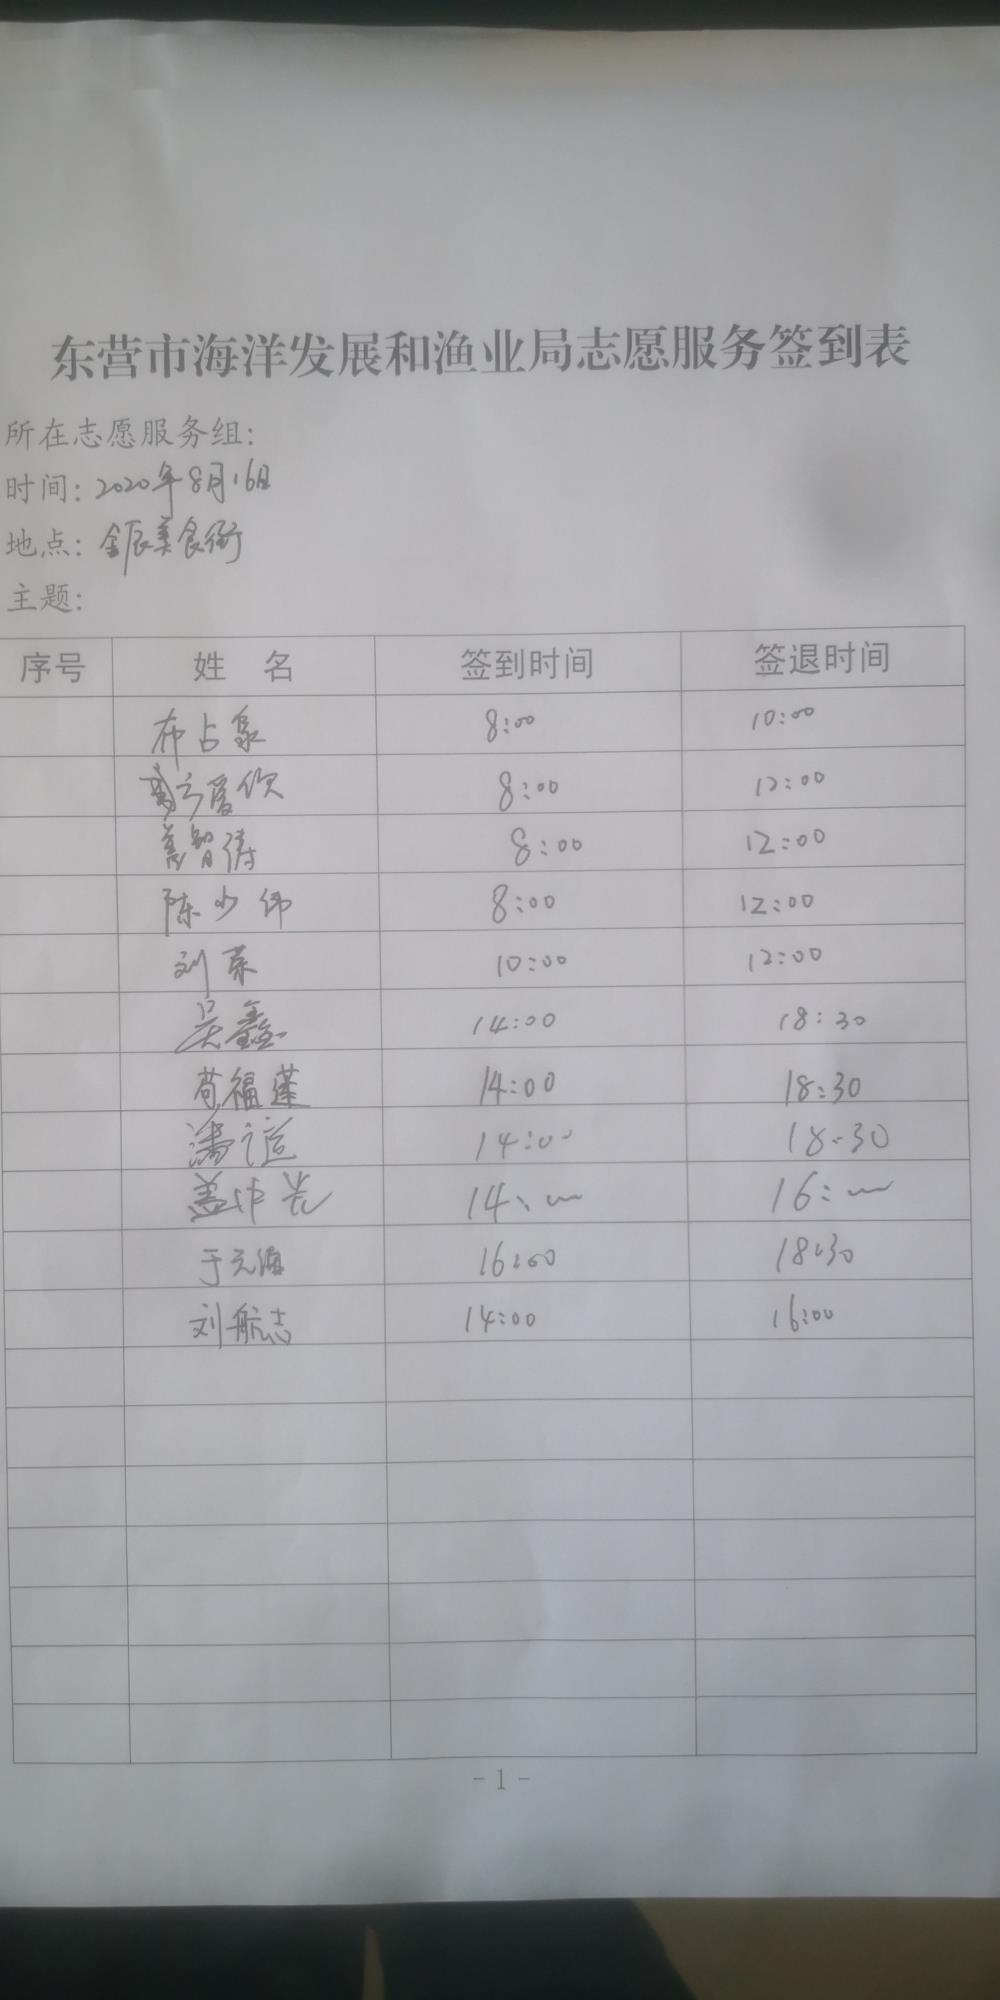 东营市海洋发展和渔业局志愿服务签到表
所在志愿服务组:
时间: 2020年8月16日
地点: 金辰美食街
主题:
序号 姓 名 签到时间 签退时间
布占泉 8:00 10:00
8:00 12:00
姜智涛 8:00 12:00
陈少伟 8:00 12:00
刘荣 10:00 12:00
吴鑫 14:00 18:30
苟福莲 14:00 18:30
14:00 18:30
盖 光 14:00 16:00
于元海 16:00 18:30
刘航志 14:00 16:00
- 1 -